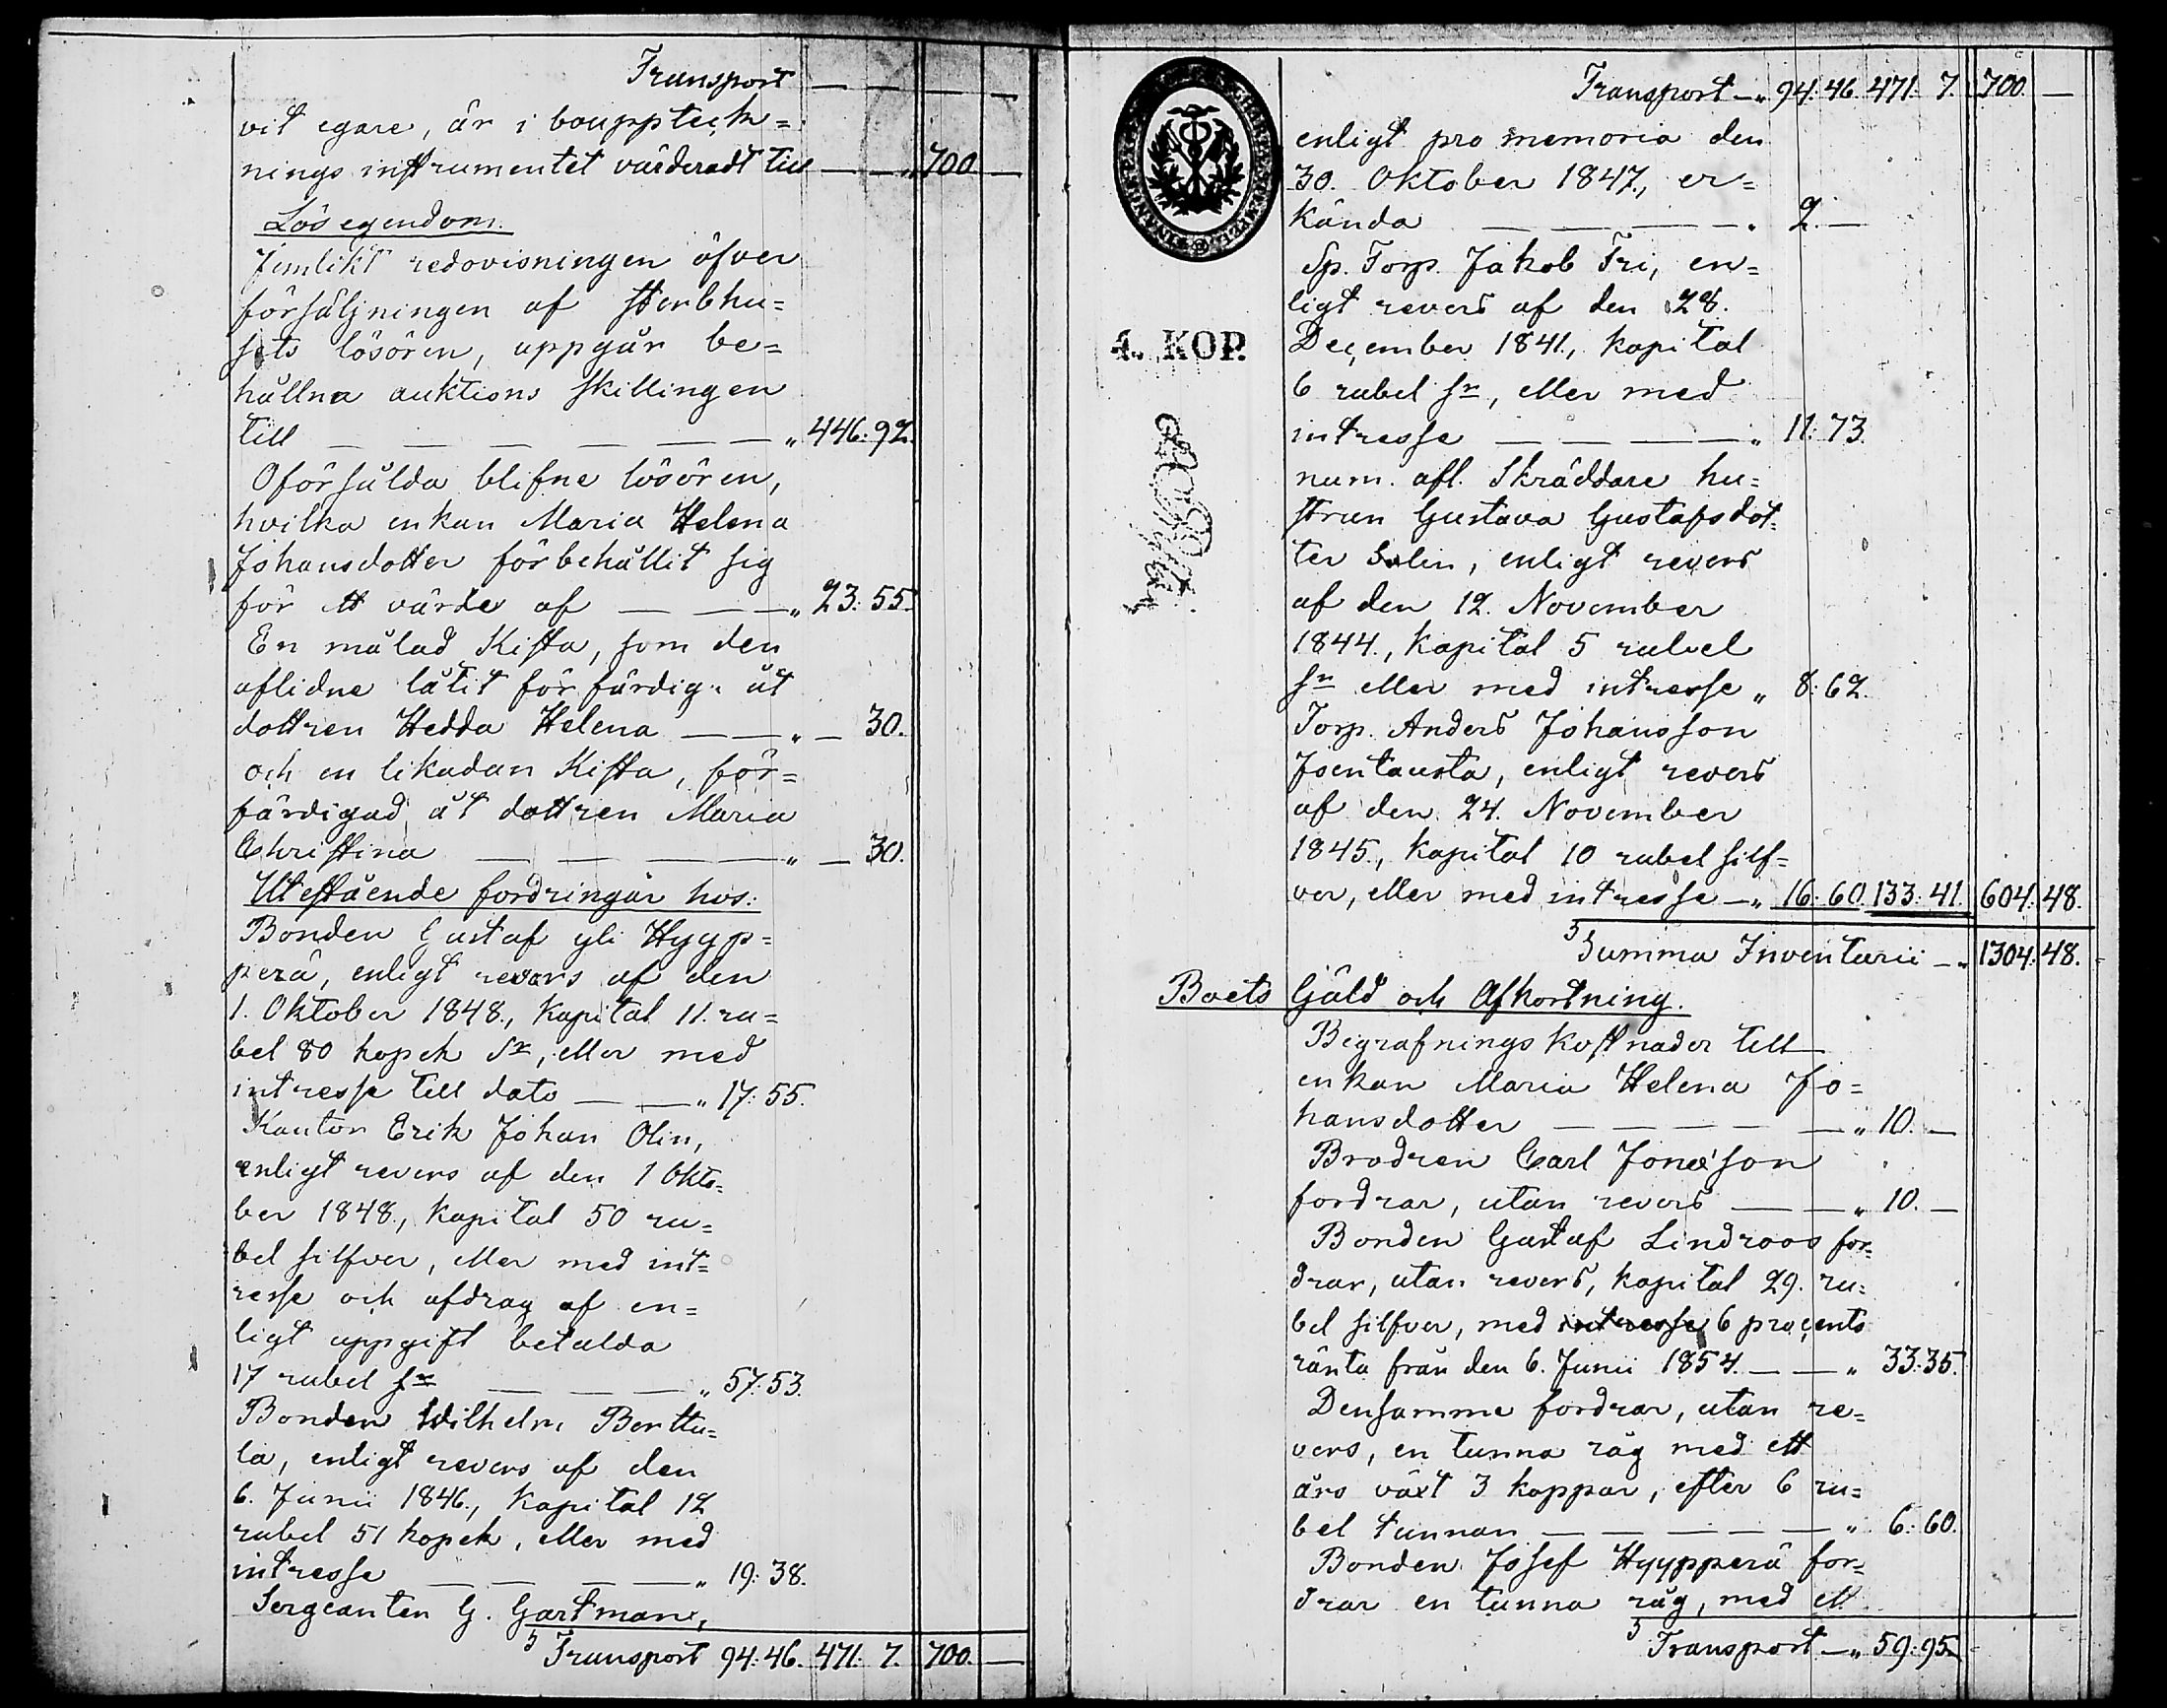 Transport — — — —
vit egare, är i bouppteck=
nings instrumentet värderadt till — — „ 700 —
Lös egendom.
Jemlikt redovisningen öfver
försäljningen af sterbhu=
sets lösören, uppgår be=
hållna auktions skillingen
till — — — — — — „ 446: 92.
Oförsålda blifne lösören,
hvilka enkan Maria Helena
Johansdotter förbehållit sig
för ett värde af — — — „ 23: 55.
En målad Kista, som den
aflidne låtit förfärdiga åt
dottren Hedda Helena — — „ — 30.
och en likadan Kista, för=
färdigad åt dottren Maria
Christina — — — — „ — 30.
Utestående fordringar hos:
Bonden Gustaf yli Hyyp=
perä, enligt revers af den
1. Oktober 1848., Kapital 11. ru=
bel 80 kopek Sr, eller med
intresse till dato — — „ 17: 55.
Kantor Erik Johan Olin,
enligt revers af den 1 Okto=
ber 1848., Kapital 50 ru=
bel silfver, eller med int=
resse och afdrag af en=
ligt uppgift betalda
17 rubel sr — — — „ 57: 53.
Bonden Wilhelm Berttu=
la, enligt revers af den
6. Junii 1846., Kapital 12
rubel 51 kopek, eller med
intresse — — — — „ 19: 38.
Sergeanten G. Gartman,
Transport 94: 46. 471: 7. 700. —
Transport — „ 94: 46. 471: 7. 700. —
enligt pro memoria den
30. Oktober 1847., er=
kända — — — — „ 2. —
Sp. Torp. Jakob Fri, en=
ligt revers af den 28.
4. KOP.
December 1841., Kapital
6 rubel sr, eller med
intresse — — — — „ 11: 73.
num. afl. Skräddare hu=
strun Gustava Gustafsdot=
ter Salin, enligt revers
af den 12. November
1844., Kapital 5 rubel
sr eller med intresse „ 8: 62.
Torp. Anders Johansson
Joentausta, enligt revers
af den 24. November
1845., Kapital 10 rubel silf=
ver, eller med intresse — „ 16: 60. 133: 41. 604: 48.
Summa Inventarii — „ 1304: 48.
Boets Gäld och Afkortning.
Begrafnings Kostnader till
enkan Maria Helena Jo=
hansdotter — — — — — „ 10. —
Brodren Carl Jonasson
fordrar, utan revers — — „ 10. —
Bonden Gustaf Lindroos for=
drar, utan revers, kapital 29. ru=
bel silfver, med intresse 6 procents
ränta från den 6. Junii 1854. — — „ 33: 35.
Densamme fordrar, utan re=
vers, en tunna råg med ett
års växt 3 kappar, efter 6 ru=
bel tunnan — — — — — „ 6: 60.
Bonden Josef Hyypperä for=
drar en tunna råg, med ett
Transport — „ 59: 95.